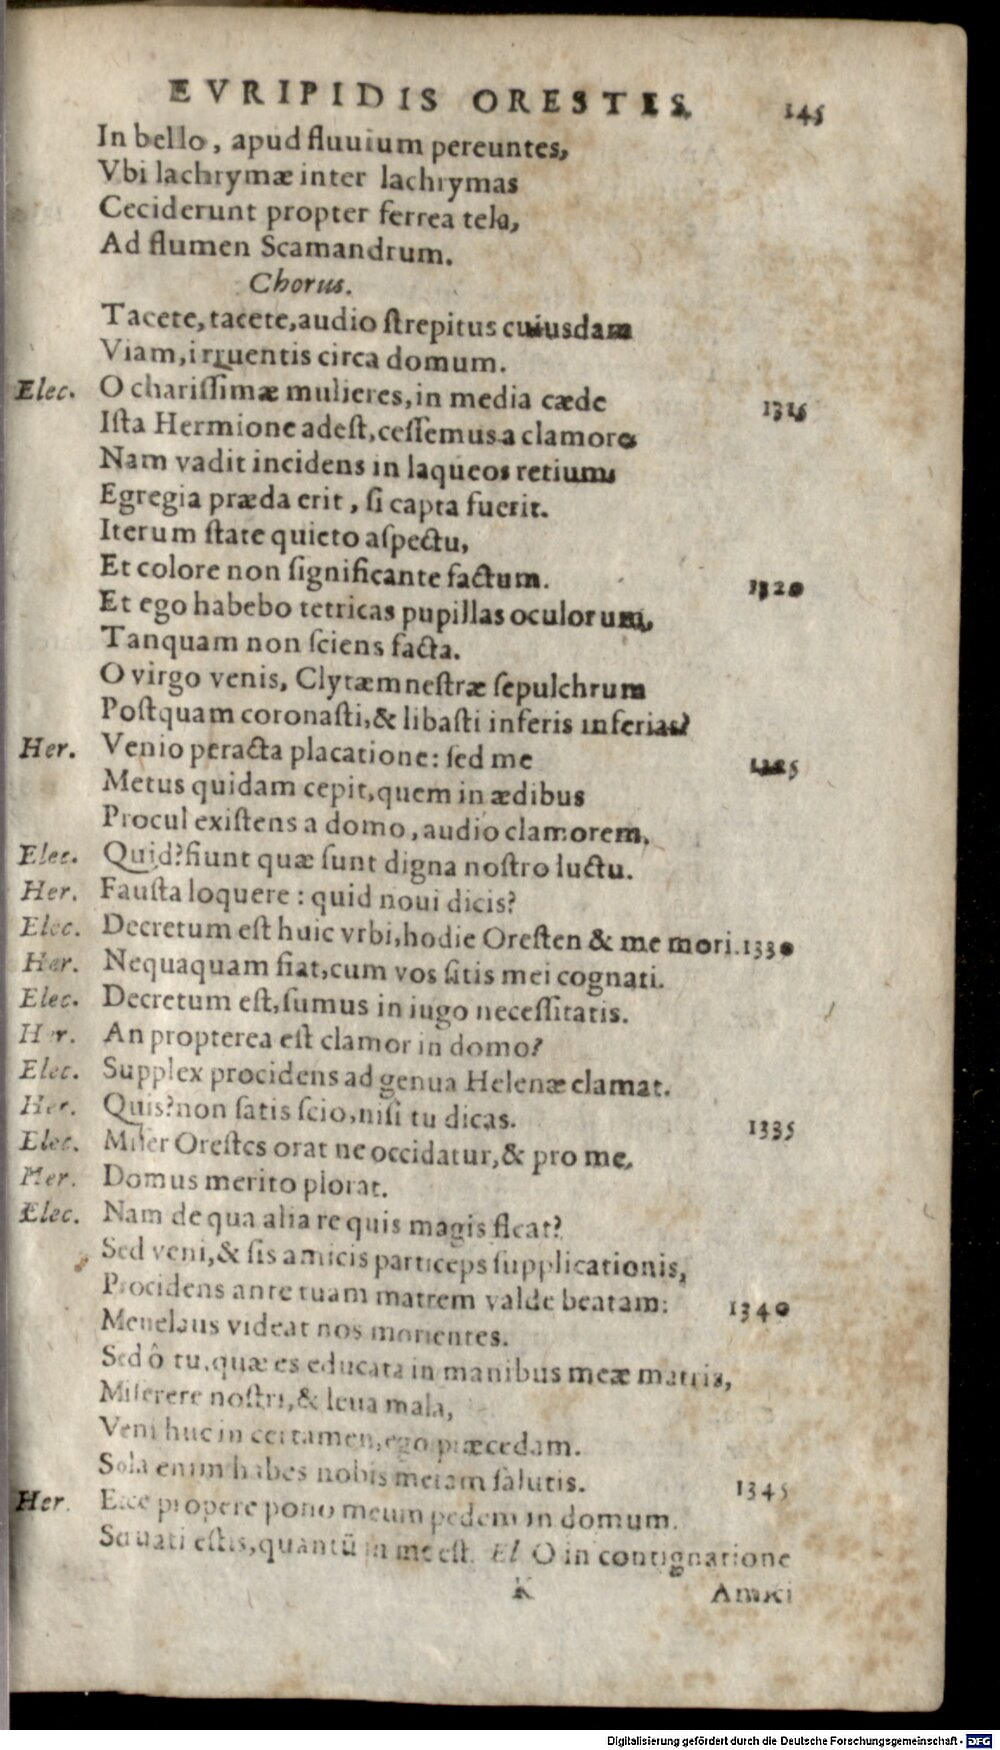 EVRIPIDIS ORESTES. 145
In bello, apud fluuium pereuntes,
Vbi lachrymæ inter lachrymas
Ceciderunt propter ferrea tela,
Ad flumen Scamandrum.
Chorus.
Tacete, tacete, audio ſtrepitus cuiusdam
Viam, irruentis circa domum.
Elec. O chariſſimæ mulieres, in media cæde 1315
Iſta Hermione adeſt, ceſſemus a clamore
Nam vadit incidens in laqueos retium
Egregia præda erit, ſi capta fuerit.
Iterum ſtate quieto aſpectu,
Et colore non ſignificante factum. 1320
Et ego habebo tetricas pupillas oculorum,
Tanquam non ſciens facta.
O virgo venis, Clytæmneſtræ ſepulchrum
Poſtquam coronaſti, & libaſti inferis inferias?
Her. Venio peracta placatione: ſed me 1325
Metus quidam cepit, quem in ædibus
Procul exiſtens a domo, audio clamorem.
Elec. Quid? fiunt quæ ſunt digna noſtro luctu.
Her. Fauſta loquere: quid noui dicis?
Elec. Decretum eſt huic vrbi, hodie Oreſten & me mori. 1330
Her. Nequaquam fiat, cum vos ſitis mei cognati.
Elec. Decretum eſt, ſumus in iugo neceſſitatis.
Her. An propterea eſt clamor in domo?
Elec. Supplex procidens ad genua Helenæ clamat.
Her. Quis? non ſatis ſcio, niſi tu dicas. 1335
Elec. Miſer Oreſtes orat ne occidatur, & pro me.
Her. Domus merito plorat.
Elec. Nam de qua alia re quis magis fleat?
Sed veni, & ſis amicis particeps ſupplicationis,
Procidens ante tuam matrem valde beatam: 1340
Menelaus videat nos morientes.
Sed ô tu, quæ es educata in manibus meæ matris,
Miſerere noſtri, & leua mala,
Veni huc in certamen, ego præcedam.
Sola enim habes nobis metam ſalutis. 1345
Her. Ecce propere pono meum pedem in domum.
Seruati eſtis, quantū in me eſt. El O in contignatione
K Amici
Digitalisierung gefördert durch die Deutsche Forschungsgemeinschaft - DFG